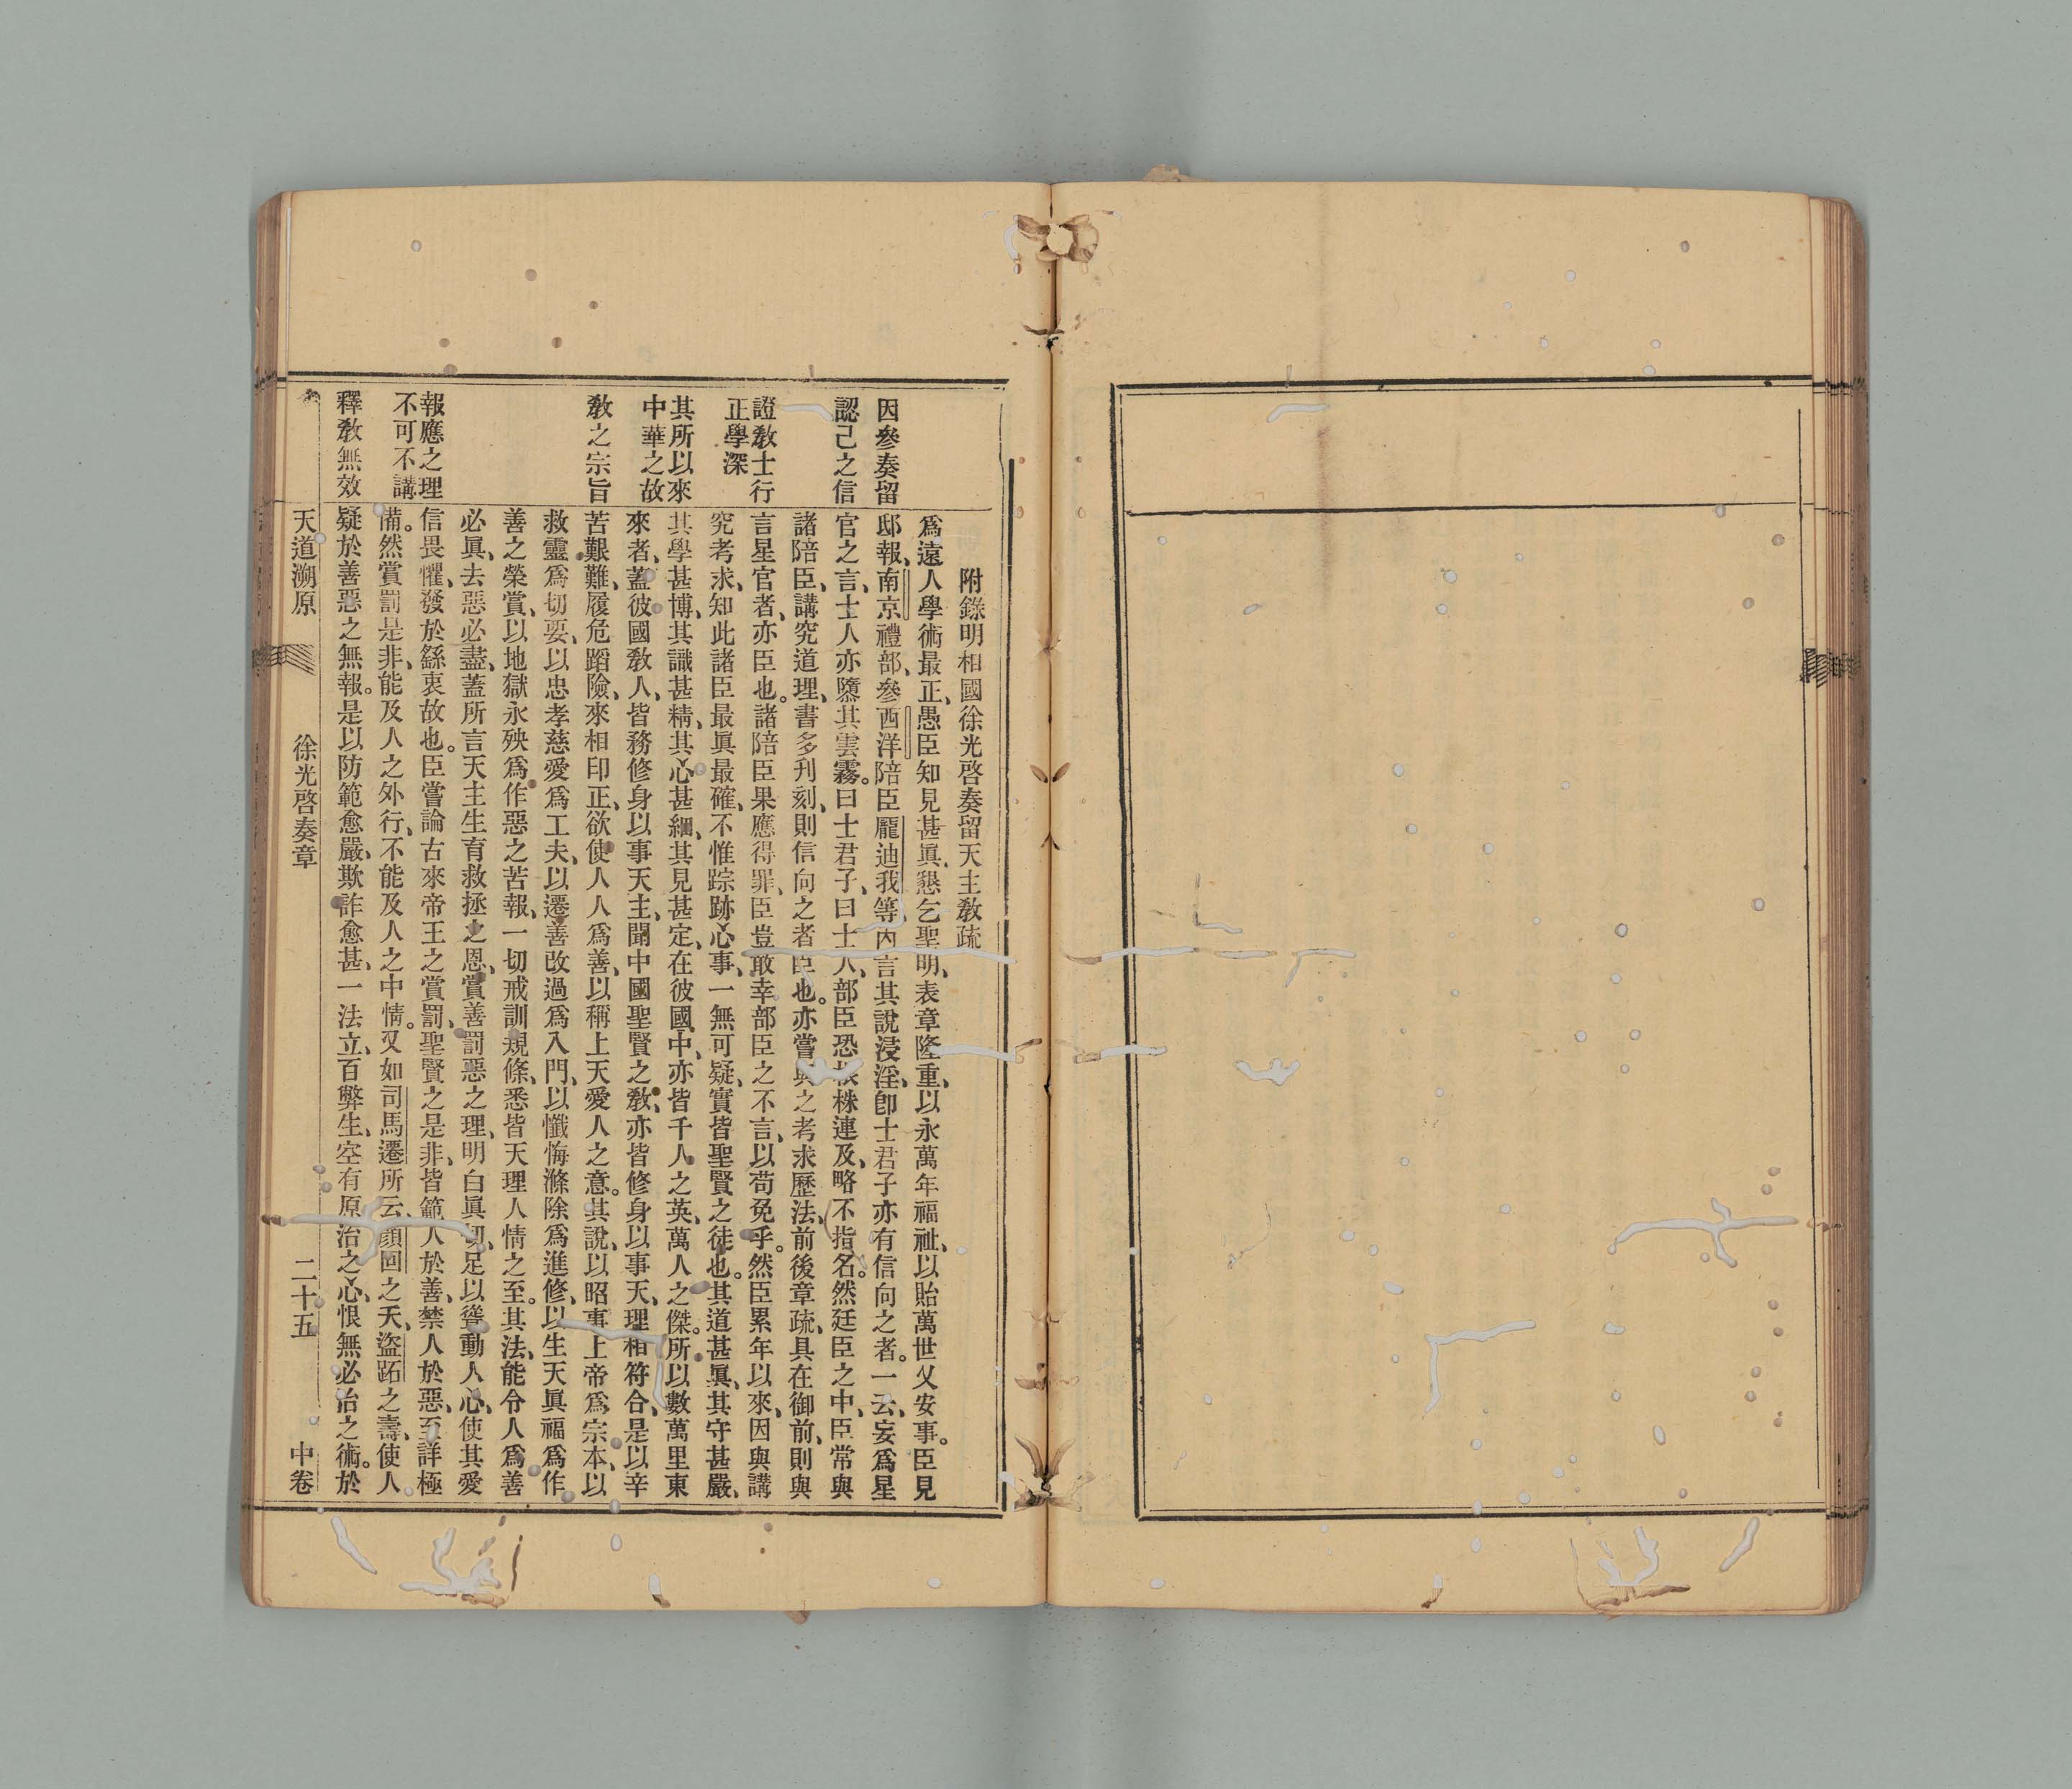 附錄明相國徐光啓奏留天主敎疏
爲遠人學術最正、愚臣知見甚眞、懇乞聖明、表章隆重、以永萬年福祉、以貽萬世乂安事。臣見
因參奏留
邸報、南京禮部、參西洋陪臣龐迪我等、內言其說浸淫、卽士君子亦有信向之者。一云、妄爲星
認己之信
官之言、士人亦墮其雲霧。曰士君子、曰士人、部臣恐根株連及、略不指名。然廷臣之中、臣常與
諸陪臣、講究道理、書多刋刻、則信向之者臣也。亦嘗與之考求歷法、前後章疏、具在御前、則與
證敎士行
正學深
言星官者、亦臣也。諸陪臣果應得罪、臣豈敢幸部臣之不言、以苟免乎。然臣累年以來、因與講
究考求、知此諸臣最眞最確、不惟踪跡心事、一無可疑、實皆聖賢之徒也。其道甚眞、其守甚嚴、
其所以來
中華之故
其學甚博、其識甚精、其心甚細、其見甚定、在彼國中、亦皆千人之英、萬人之傑。所以數萬里東
來者、蓋彼國敎人、皆務修身以事天主、聞中國聖賢之敎、亦皆修身以事天、理相符合、是以辛
敎之宗旨
苦艱難、履危蹈險、來相印正、欲使人人爲善、以稱上天愛人之意。其說、以昭事上帝爲宗本、以
救靈爲切要、以忠孝慈愛爲工夫、以遷善改過爲入門、以懺悔滌除爲進修、以生天眞福爲作
善之榮賞、以地獄永殃爲作惡之苦報、一切戒訓規條、悉皆天理人情之至。其法、能令人爲善
必眞、去惡必盡、蓋所言天主生育救拯之恩、賞善罰惡之理、明白眞切、足以聳動人心、使其愛
報應之理
不可不講
信畏懼、發於繇衷故也。臣嘗論古來帝王之賞罰、聖賢之是非、皆範人於善、禁人於惡、至詳極
備。然賞罰是非、能及人之外行、不能及人之中情。又如司馬遷所云、顏回之夭、盜跖之壽、使人
釋敎無效
疑於善惡之無報。是以防範愈嚴、欺詐愈甚、一法立、百弊生、空有原治之心、恨無必治之術。於
天道溯原
徐光啓奏章
二十五
中卷